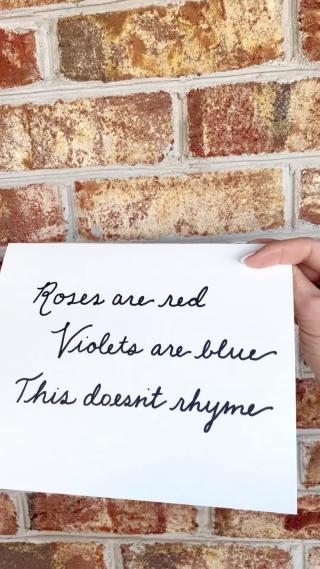 Roses are red
Violets are blue
This doesn't rhyme